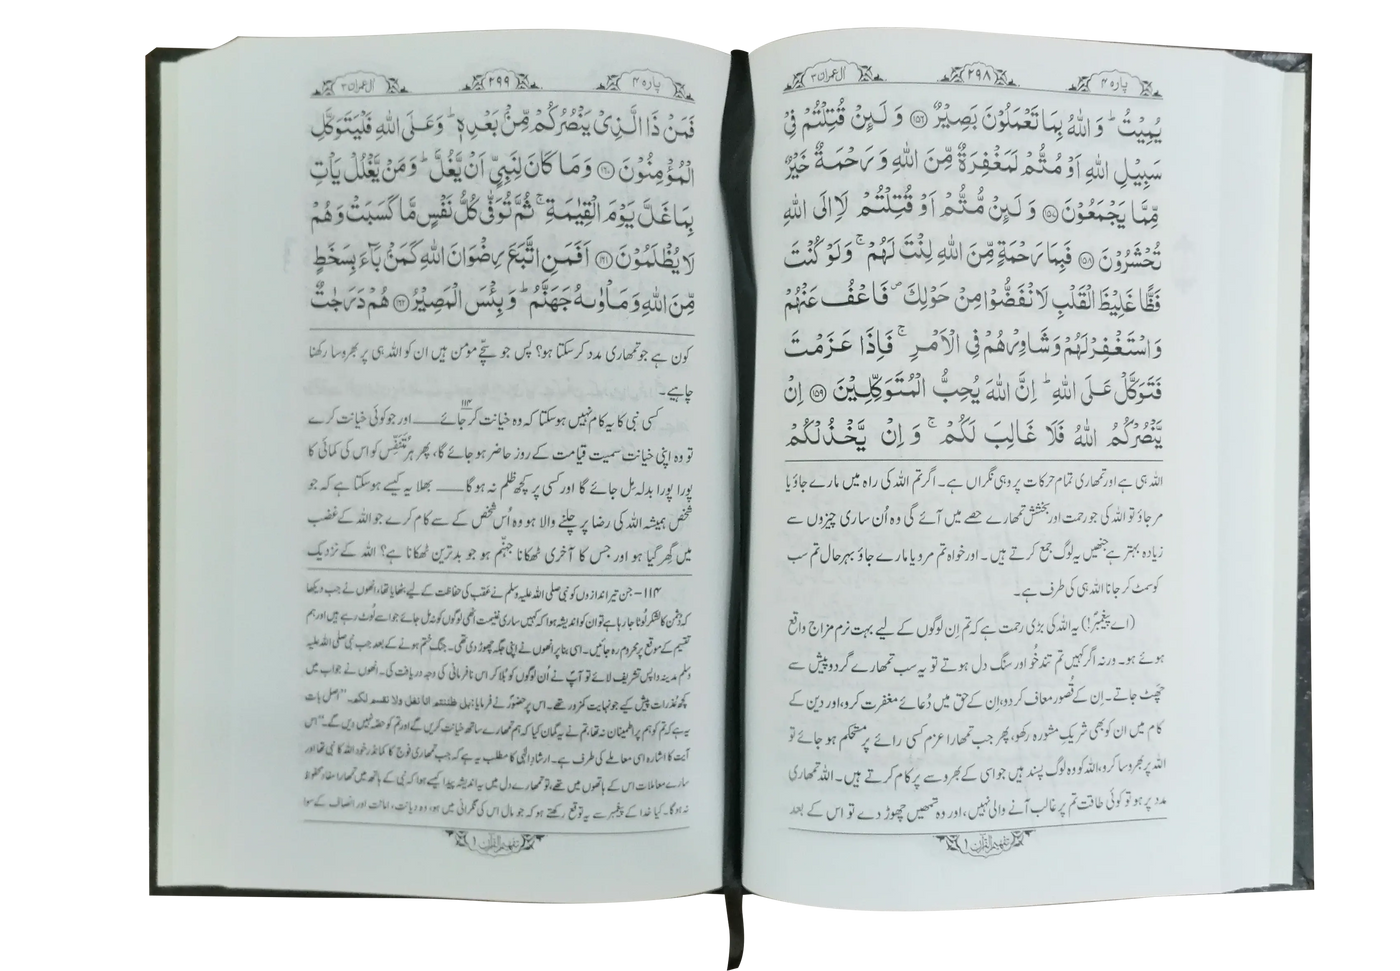 پارہ ۴
۲۹۸
آل عمران ۳
يُمِيْتُ ؕ وَ اللّٰهُ بِمَا تَعْمَلُوْنَ بَصِيْرٌ ﴿۱۵۶﴾ وَ لَىِٕنْ قُتِلْتُمْ فِيْ
سَبِيْلِ اللّٰهِ اَوْ مُتُّمْ لَمَغْفِرَةٌ مِّنَ اللّٰهِ وَ رَحْمَةٌ خَيْرٌ
مِّمَّا يَجْمَعُوْنَ ﴿۱۵۷﴾ وَ لَىِٕنْ مُّتُّمْ اَوْ قُتِلْتُمْ لَاۡاِلَى اللّٰهِ
تُحْشَرُوْنَ ﴿۱۵۸﴾ فَبِمَا رَحْمَةٍ مِّنَ اللّٰهِ لِنْتَ لَهُمْ ۚ وَ لَوْ كُنْتَ
فَظًّا غَلِيْظَ الْقَلْبِ لَانْفَضُّوْا مِنْ حَوْلِكَ ۪ فَاعْفُ عَنْهُمْ
وَ اسْتَغْفِرْ لَهُمْ وَ شَاوِرْهُمْ فِي الْاَمْرِ ۚ فَاِذَا عَزَمْتَ
فَتَوَكَّلْ عَلَى اللّٰهِ ؕ اِنَّ اللّٰهَ يُحِبُّ الْمُتَوَكِّلِيْنَ ﴿۱۵۹﴾ اِنْ
يَّنْصُرْكُمُ اللّٰهُ فَلَا غَالِبَ لَكُمْ ۚ وَ اِنْ يَّخْذُلْكُمْ
اللہ ہی ہے اور تمھاری تمام حرکات پر وہی نگراں ہے۔ اگر تم اللہ کی راہ میں مارے جاؤ یا
مر جاؤ تو اللہ کی جو رحمت اور بخشش تمھارے حصے میں آئے گی وہ اُن ساری چیزوں سے
زیادہ بہتر ہے جنھیں یہ لوگ جمع کرتے ہیں۔ اور خواہ تم مرو یا مارے جاؤ بہرحال تم سب
کو سمٹ کر جانا اللہ ہی کی طرف ہے۔
(اے پیغمبرؐ!) یہ اللہ کی بڑی رحمت ہے کہ تم اِن لوگوں کے لیے بہت نرم مزاج واقع
ہوئے ہو۔ ورنہ اگر کہیں تم تند خُو اور سنگ دل ہوتے تو یہ سب تمھارے گردوپیش سے
چھٹ جاتے۔ اِن کے قُصور معاف کر دو، اِن کے حق میں دُعائے مغفرت کرو، اور دین کے
کام میں ان کو بھی شریکِ مشورہ رکھو، پھر جب تمھارا عزم کسی رائے پر مستحکم ہو جائے تو
اللہ پر بھروسا کرو، اللہ کو وہ لوگ پسند ہیں جو اسی کے بھروسے پر کام کرتے ہیں۔ اللہ تمھاری
مدد پر ہو تو کوئی طاقت تم پر غالب آنے والی نہیں، اور وہ تمھیں چھوڑ دے تو اس کے بعد
تفہیم القرآن ۱
پارہ ۴
۲۹۹
آل عمران ۳
فَمَنْ ذَا الَّذِيْ يَنْصُرُكُمْ مِّنْۢ بَعْدِهٖ ؕ وَ عَلَى اللّٰهِ فَلْيَتَوَكَّلِ
الْمُؤْمِنُوْنَ ﴿۱۶۰﴾ وَ مَا كَانَ لِنَبِيٍّ اَنْ يَّغُلَّ ؕ وَ مَنْ يَّغْلُلْ يَاْتِ
بِمَا غَلَّ يَوْمَ الْقِيٰمَةِ ۚ ثُمَّ تُوَفّٰى كُلُّ نَفْسٍ مَّا كَسَبَتْ وَ هُمْ
لَا يُظْلَمُوْنَ ﴿۱۶۱﴾ اَفَمَنِ اتَّبَعَ رِضْوَانَ اللّٰهِ كَمَنْۢ بَآءَ بِسَخَطٍ
مِّنَ اللّٰهِ وَ مَاْوٰىهُ جَهَنَّمُ ؕ وَ بِئْسَ الْمَصِيْرُ ﴿۱۶۲﴾ هُمْ دَرَجٰتٌ
کون ہے جو تمھاری مدد کر سکتا ہو؟ پس جو سچّے مومن ہیں ان کو اللہ ہی پر بھروسا رکھنا
چاہیے۔
کسی نبی کا یہ کام نہیں ہو سکتا کہ وہ خیانت کر جائے۱۱۴ ـــــ اور جو کوئی خیانت کرے
تو وہ اپنی خیانت سمیت قیامت کے روز حاضر ہو جائے گا، پھر ہر مُتَنَفِّس کو اس کی کمائی کا
پورا پورا بدلہ مِل جائے گا اور کسی پر کچھ ظلم نہ ہو گا ـــــ بھلا یہ کیسے ہو سکتا ہے کہ جو
شخص ہمیشہ اللہ کی رضا پر چلنے والا ہو وہ اُس شخص کے سے کام کرے جو اللہ کے غضب
میں گھِر گیا ہو اور جس کا آخری ٹھکانا جہنّم ہو جو بدترین ٹھکانا ہے؟ اللہ کے نزدیک
۱۱۴- جن تیر اندازوں کو نبی صلی اللہ علیہ وسلم نے عقب کی حفاظت کے لیے بٹھایا تھا، انھوں نے جب دیکھا
کہ دُشمن کا لشکر لُوٹا جا رہا ہے تو ان کو اندیشہ ہوا کہ کہیں ساری غنیمت انھی لوگوں کو نہ مل جائے جو اسے لُوٹ رہے ہیں اور ہم
تقسیم کے موقع پر محروم رہ جائیں۔ اسی بنا پر انھوں نے اپنی جگہ چھوڑ دی تھی۔ جنگ ختم ہونے کے بعد جب نبی صلی اللہ علیہ
وسلم مدینہ واپس تشریف لائے تو آپؐ نے اُن لوگوں کو بُلا کر اس نافرمانی کی وجہ دریافت کی۔ انھوں نے جواب میں
کچھ عُذرات پیش کیے جو نہایت کمزور تھے۔ اس پر حضوؐر نے فرمایا: بل ظننتم انا نغل ولا نقسم لکم۔ ”اصل بات
یہ ہے کہ تم کو ہم پر اطمینان نہ تھا، تم نے یہ گمان کیا کہ ہم تمھارے ساتھ خیانت کریں گے اور تم کو حصّہ نہیں دیں گے۔“ اس
آیت کا اشارہ اسی معاملے کی طرف ہے۔ ارشادِ الٰہی کا مطلب یہ ہے کہ جب تمھاری فوج کا کمانڈر خود اللہ کا نبی تھا اور
سارے معاملات اس کے ہاتھوں میں تھے، تو تمھارے دل میں یہ اندیشہ پیدا کیسے ہوا کہ نبی کے ہاتھ میں تمھارا مفاد محفوظ
نہ ہو گا۔ کیا خدا کے پیغمبر سے یہ توقع رکھتے ہو کہ جو مال اس کی نگرانی میں ہو، وہ دیانت، امانت اور انصاف کے سوا
تفہیم القرآن ۱